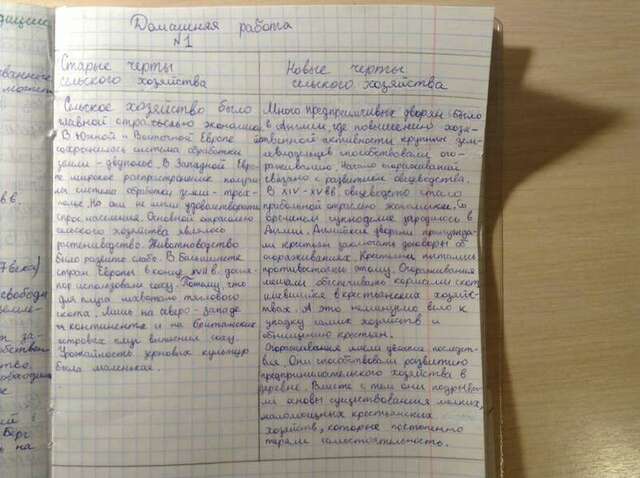 Домашняя работа
№1
Старые черты
сельского хозяйства
Сельское хозяйство было
главной отраслью экономики.
В Южной и Восточной Европе
сохранилась система обработки
земли - двуполье. В Западной Евро-
пе широкое распространение получи-
ла система обработки земли - трех-
полье. Но они не могли удовлетворить
спрос населения. Основной отраслью
сельского хозяйства являлось
растениводство. Животноводство
было развито слабо. В большинстве
стран Европы в конце XVII в. до сих
пор использовали соху. Потому что
для плуга нехватало тяглового
скота. Лишь на северо-западе
континента и на британских
островах плуг вытеснил соху.
Урожайность зерновых культур
была маленькая.
Новые черты
сельского хозяйства
Много предприимчивых дворян было
в Англии, где повышению хозя-
йственной активности крупных зем-
левладельцев способствовали ого-
раживания. Начало огораживаний
связано с развитием овцеводства.
В XIV-XV вв. овцеводство стало
прибольной отраслью экономики. Со
временем сукноделие зародилось в
Англии. Английские дворяне принужда-
ли крестьян заключать договоры об
огораживаниях. Крестьяне пытались
противостоять этому. Огораживания
мешали обеспечивать кормами скот
имевшийся в крестьянских хозяйс-
твах. А это неминуемо вело к
упадку самих хозяйств и
обнищанию крестьян.
Огораживания имели двоякие последст-
вия. Они способствовали развитию
предпринимательского хозяйства в
деревне. Вместе с тем они подрыва-
ли основы существования мелких,
маломощных крестьянских
хозяйств, которые постепенно
теряли самостоятельность.